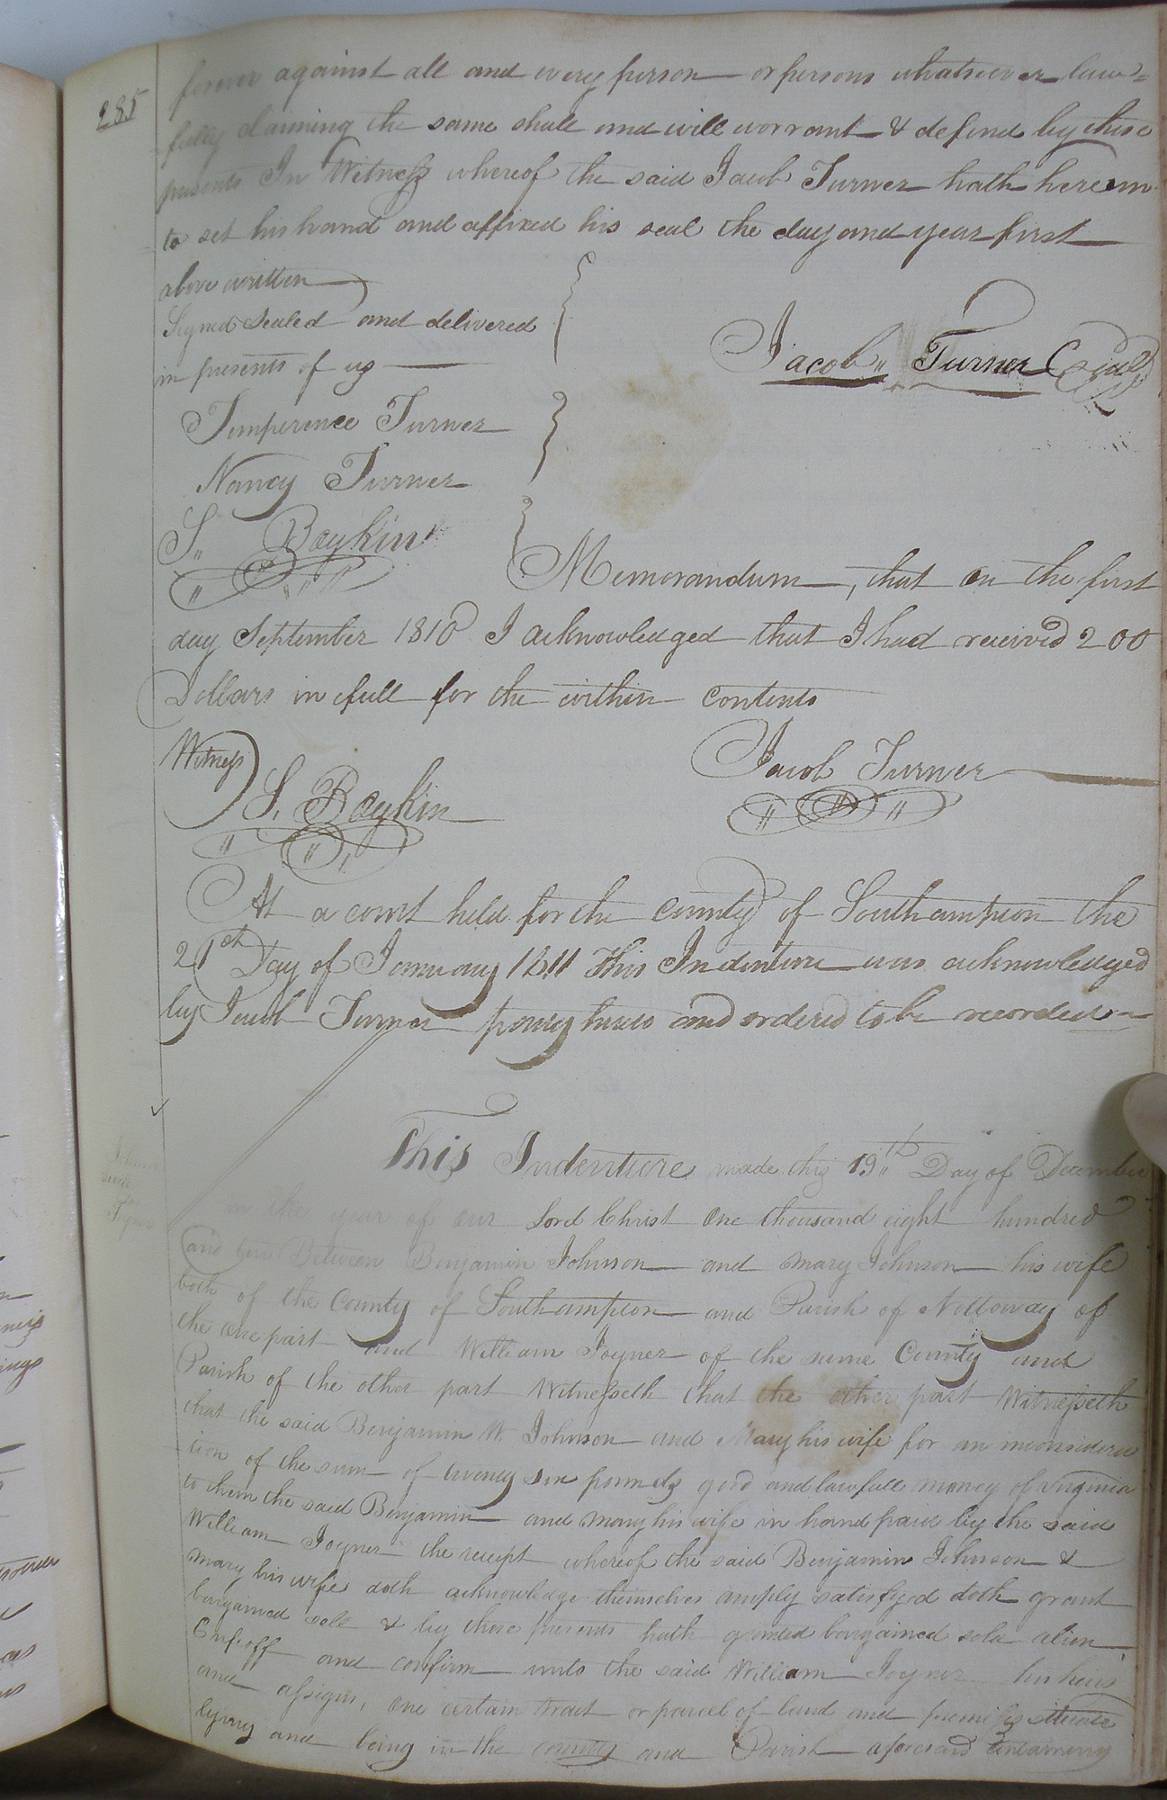 285
forever against all and every person or persons whatsoever law=
fully claiming the same shall and will warrant & defend by these
presents In Witness whereof the said Jacob Turner hath hereun
to set his hand and affixed his seal the day and year first
above written
Signed Sealed and delivered
in presents of us
Jacob Turner Seal
Temperence Turner
Nancy Turner
S. Boykin
Memorandum, that on the first
day September 1810 I acknowledged that I had received 200
Dollars in full for the within contents
Witness
Jacob Turner
S. Boykin
At a court held for the County of Southampton the
21st Day of January 1811 This Indenture was acknowledged
by Jacob Turner party hereto and ordered to be recorded
This Indenture made this 19th Day of December
in the year of our Lord Christ One thousand eight hundred
and ten Between Benjamin Johnson and Mary Johnson his wife
both of the County of Southampton and Parish of Nottoway of
the one part and William Joyner of the same County and
Parish of the other part Witnesseth that the other part Witnesseth
that the said Benjamin W. Johnson and Mary his wife for an inconsidera
tion of the sum of twenty six pounds good and lawfull money of Virginia
to them the said Benjamin and Mary his wife in hand paid by the said
William Joyner the receipt whereof the said Benjamin Johnson &
Mary his wife doth acknowledge themselves amply satisfyed doth grant
bargained sold & by these presents hath granted bargained sold alien
Enfeoff and confirm unto the said William Joyner his heirs
and assigns, one certain tract or parcel of land and premises situate
lying and being in the county and Parish aforesaid containing